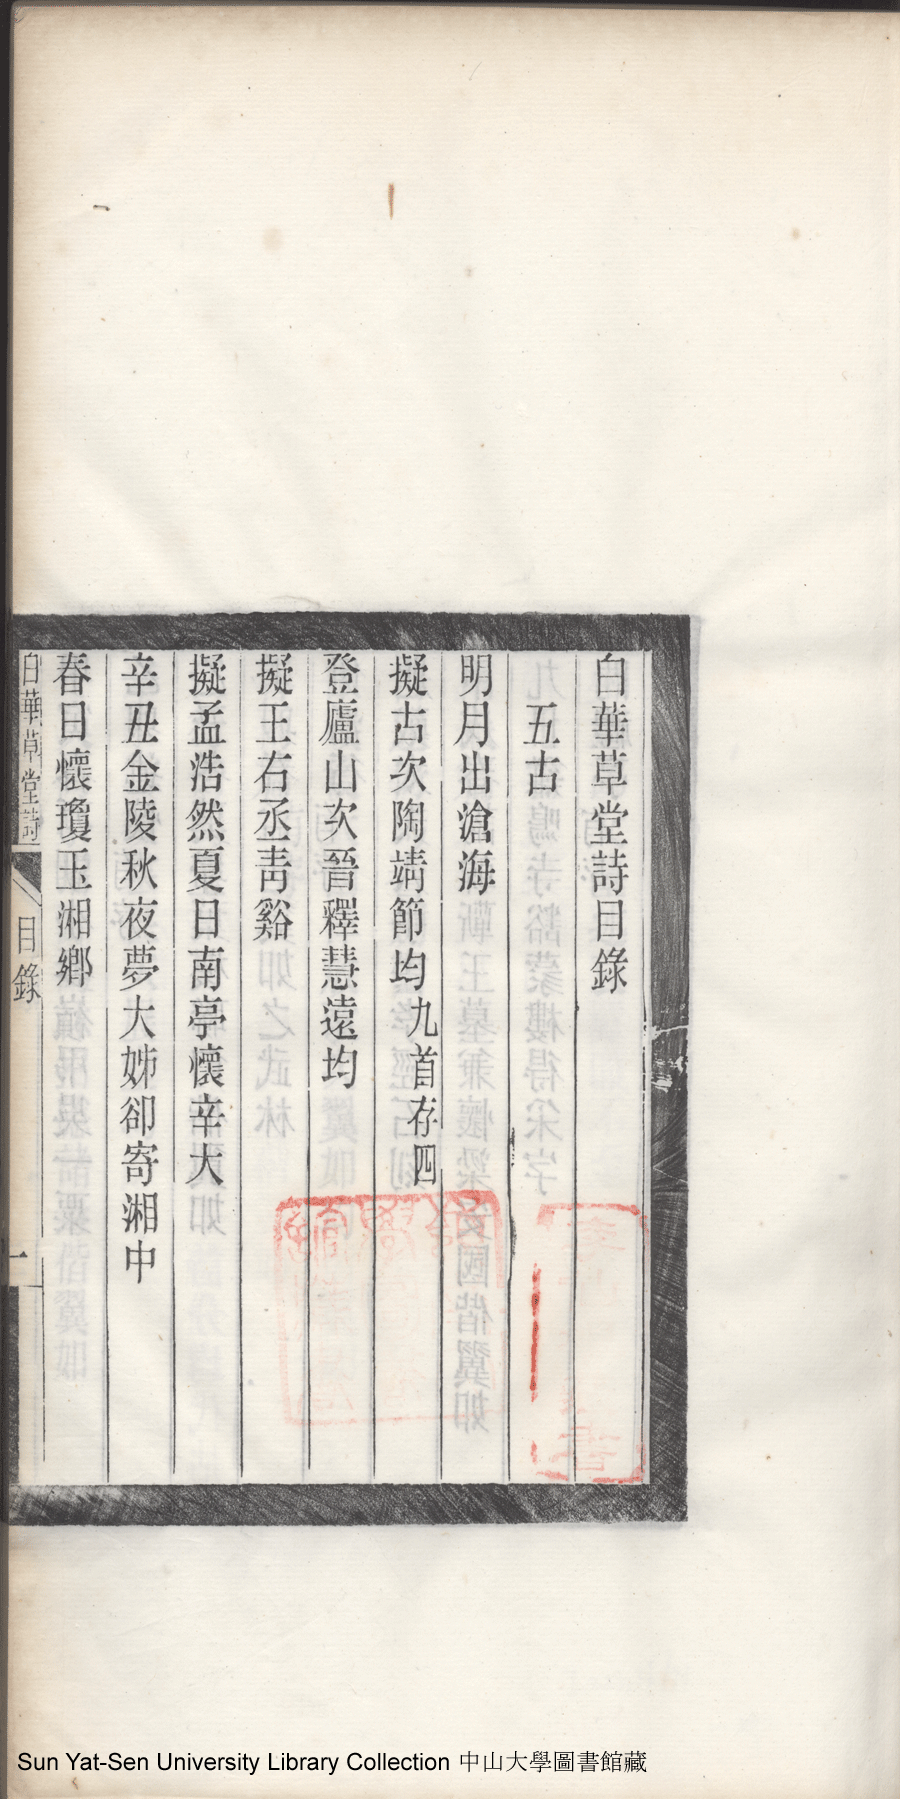 白華草堂詩目錄
五古
明月出滄海
擬古次陶靖節均九首存四
登廬山次晉釋慧遠均
擬王右丞靑谿
擬孟浩然夏日南亭懷辛大
辛丑金陵秋夜夢大姊卻寄湘中
春日懷瓊玉湘鄉
白華草堂詩 目錄 一
Sun Yat-Sen University Library Collection 中山大學圖書館藏